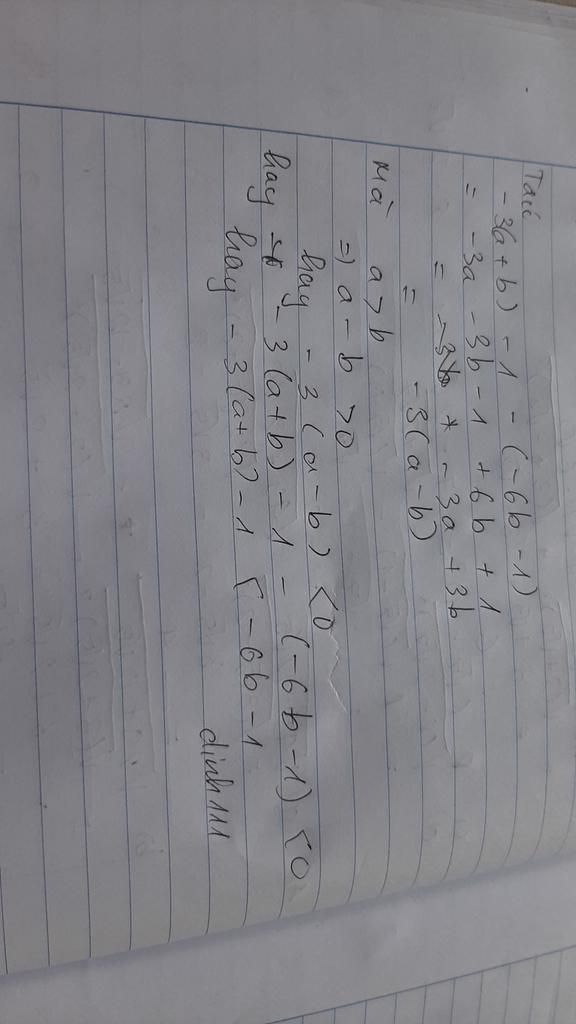 Ta có
-3(a+b) -1 - (-6b-1)
= -3a - 3b - 1 + 6b + 1
= -3a + 3b
= -3(a-b)
Mà a>b
=) a - b >0
hay -3(a-b) <0
hay -3(a+b) -1 - (-6b-1) <0
hay -3(a+b) -1 < -6b-1
dinh111